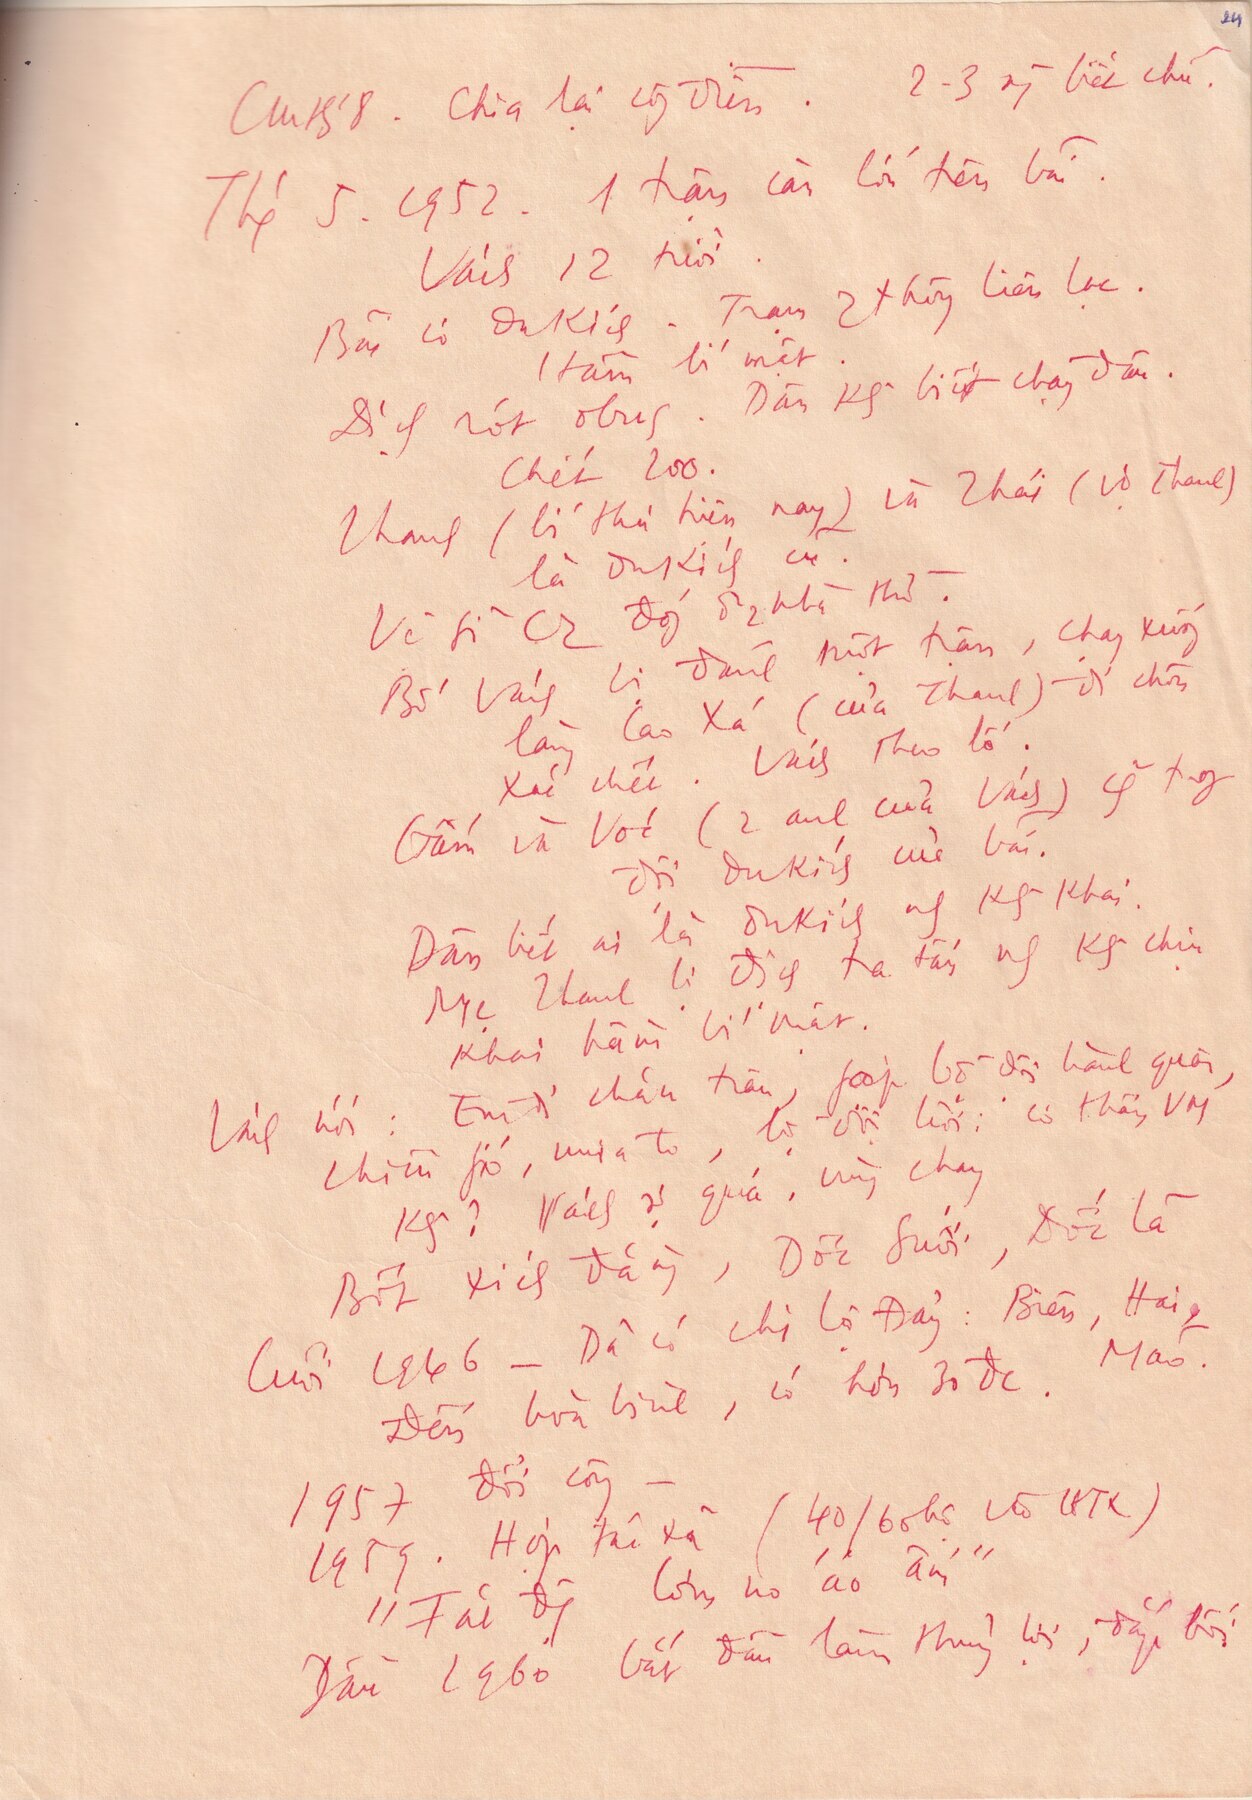 24
CmT8. Chia lại cg điền. 2-3 ng biết chữ.
Thg 5. 1952. 1 trận càn lớn trên bãi.
Vách 12 tuổi.
Bãi có du Kích. Trạm thông liên lạc.
1 hầm bí mật.
Địch rót obus. Dân Kg biết chạy đâu.
Chết 200.
Khanh (bí thư hiện nay) và Khái (vợ Thanh)
là du Kích cũ.
Vệ sĩ đóg ở nhà thờ.
Bố Vách bị đánh một trận, chạy xuống
làng Cao Xá (của Thanh) đi chôn
xác chết. Vách theo bố.
Gấm và Voć (2 anh của Vách) cg trog
đội du Kích của bãi.
Dân biết ai là du Kích ng Kg Khai.
Mẹ Khanh bị địch tra tấn ng Kg chịu
Khai hầm bí mật.
Vách nói: Em đi chăn trâu, gặp bộ đội hành quân,
chiều gió, mưa to, bộ đội hỏi: có thấy VM
Kg? Vách sợ quá, vùng chạy
Bốt xích đằng, Dốc Suối, Dốc Lã
Cuối 1946 – Đã có chi bộ Đảng: Biên, Hai,
Mão.
Đến hoà bình, có hơn 30 đc.
1957 đổi công –
1959. Hợp tác xã (40/60 hộ vào HTX)
"Tác độ cơm no áo ấm"
Đầu 1960 bắt đầu làm thuỷ lợi, đắp bối